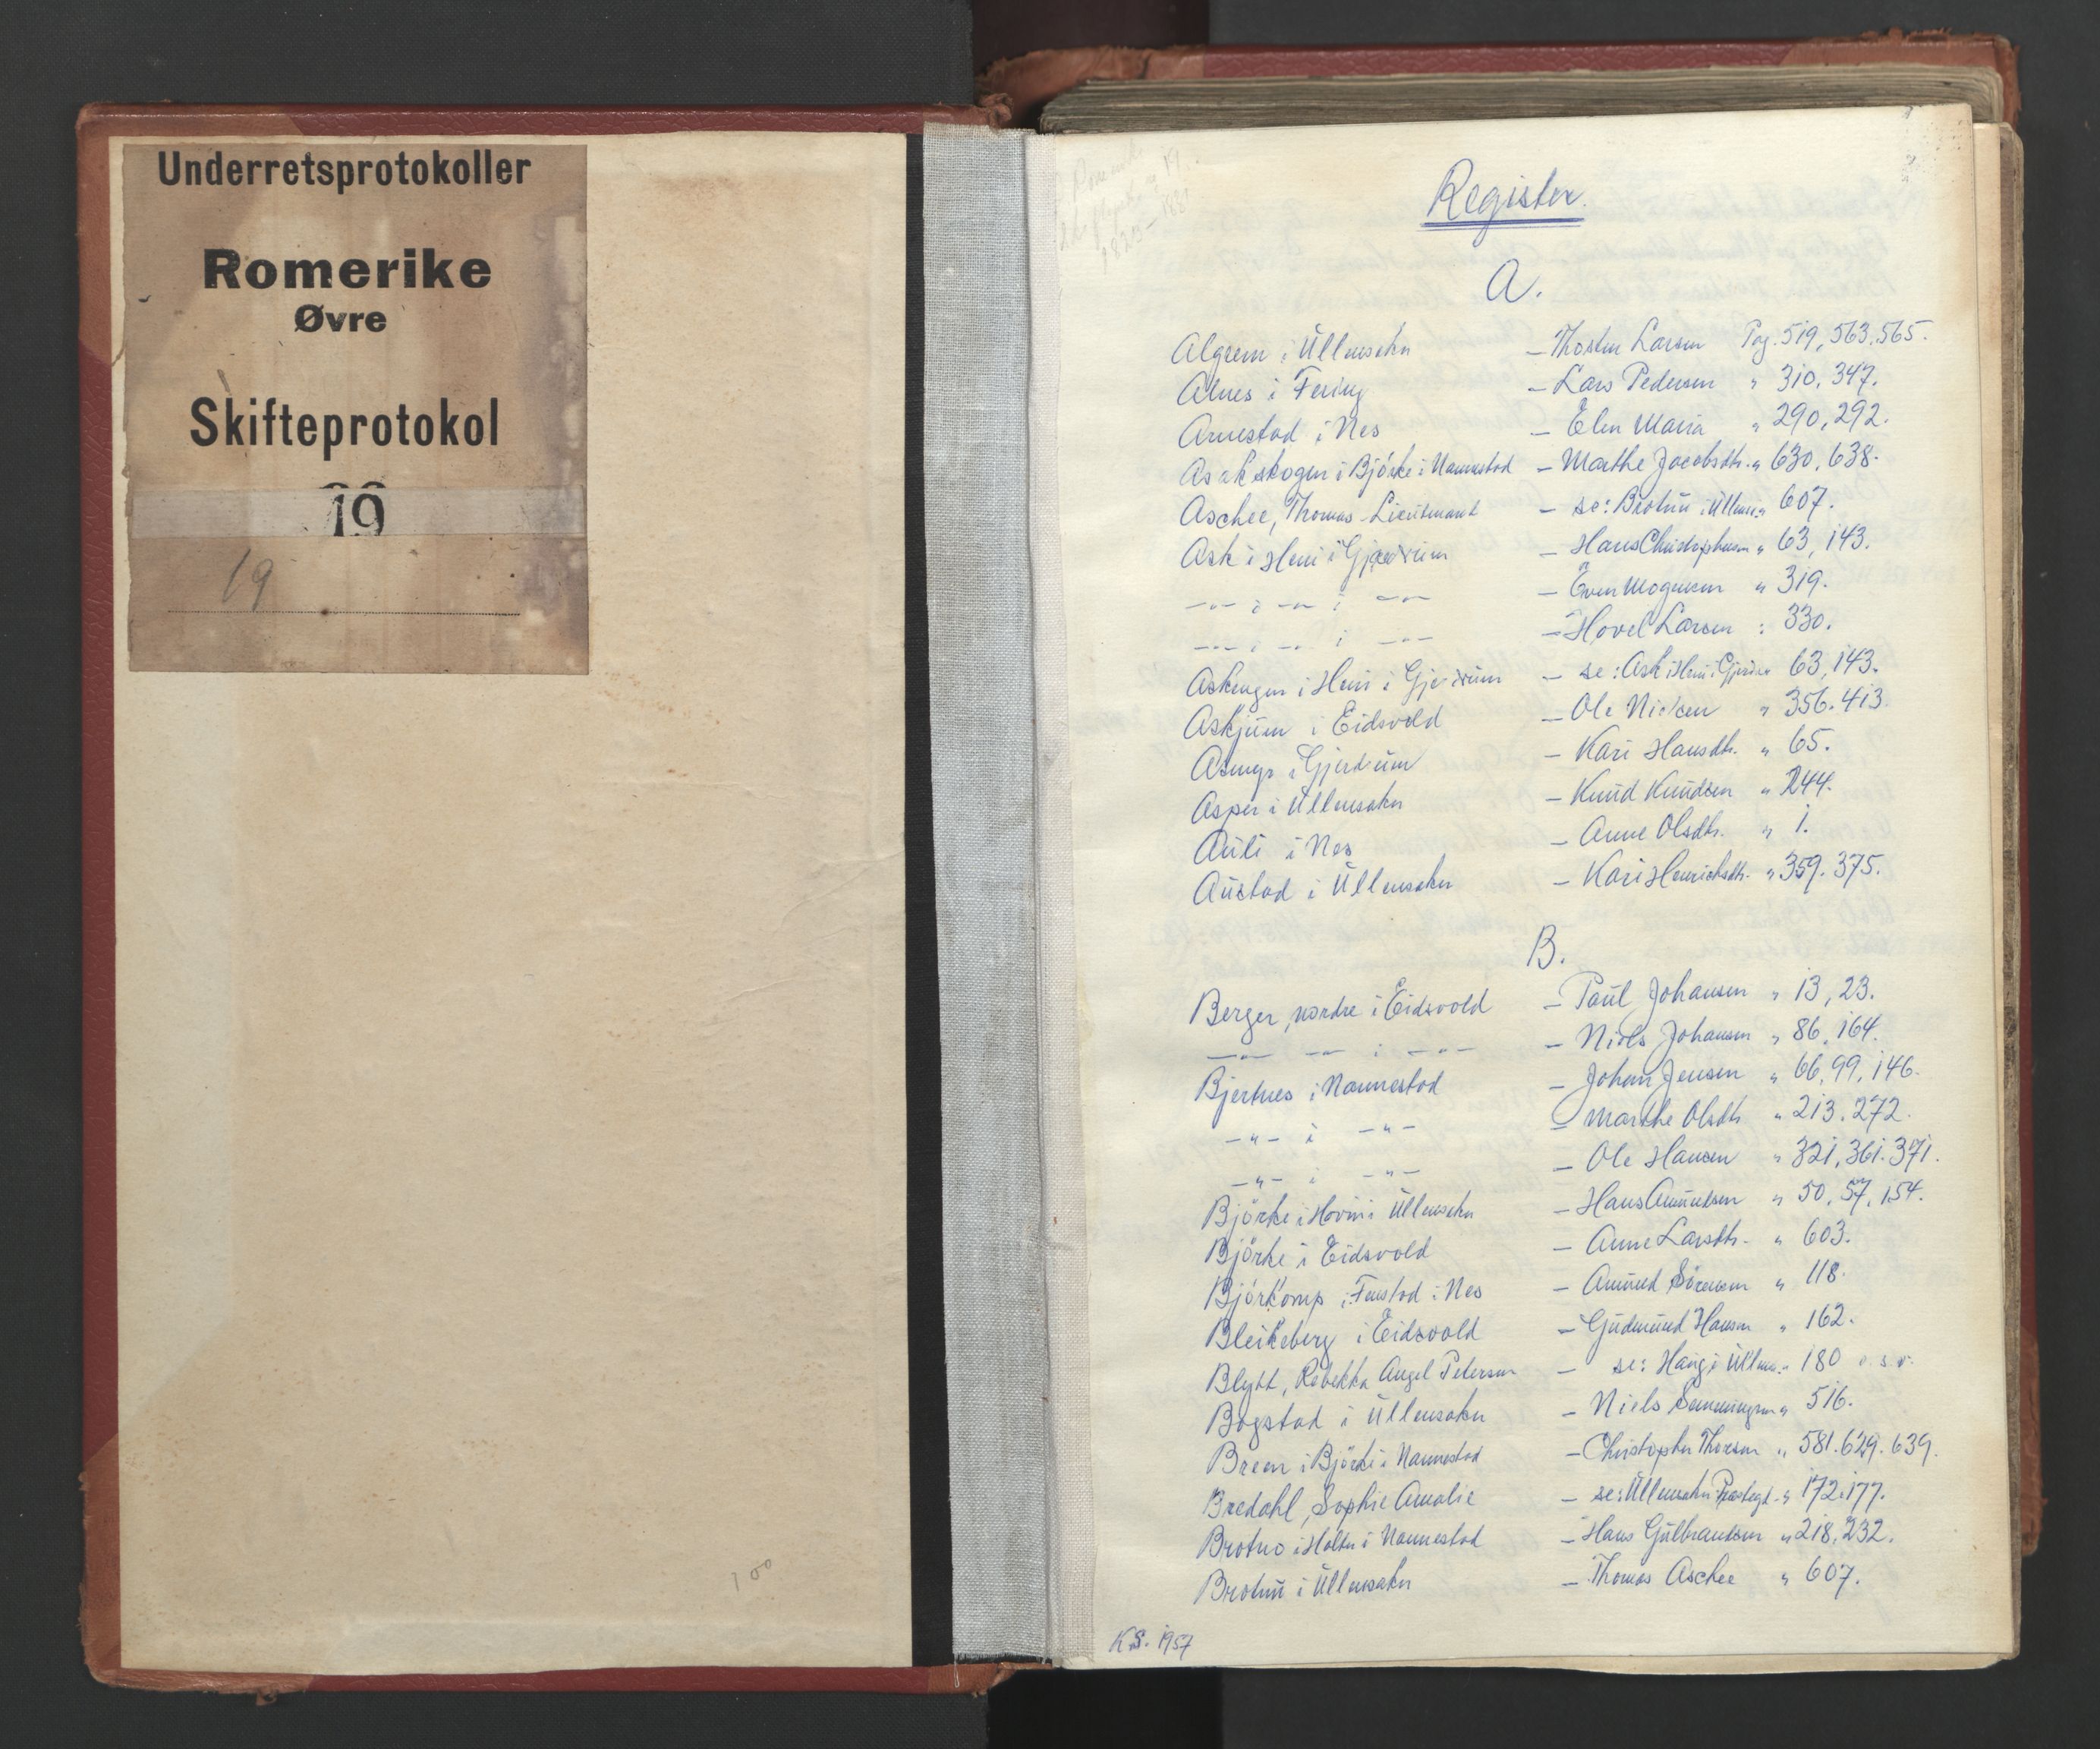 Underretsprotokoller
Romerike
Øvre
Skifteprotokol
19
19
100
19.
Register.
A.
Algrem i Ullensaker — Thosten Larsen Pag. 519, 563. 565.
Alnes i Fering — Lars Pedersen " 310, 347.
Arnestad i Nes — Elen Maria " 290, 292.
Asakskogen i Björke i Nannestad — Marthe Jacobsdtr. " 630, 638.
Aschee, Thomas Lieutenant — se: Brotnu i Ullens. " 607.
Ask i Heni i Gjerdrum — Hans Christophersen " 63, 143.
—"— i —"— i —"— — Even Mogensen " 319.
—"— i —"— i —"— — Hovel Larsen " 330.
Askengen i Heni i Gjerdrum — se: Ask i Heni i Gjerdr. " 63, 143.
Askjum i Eidsvold — Ole Nielsen " 356. 413.
Asmyr i Gjerdrum — Kari Hansdtr. " 65.
Asper i Ullensaker — Knud Knudsen " 244.
Auli i Nes — Anne Olsdtr. " 1.
Austad i Ullensaker — Kari Henrichsdtr. " 359. 375.
B.
Berger, nordre i Eidsvold — Paul Johansen " 13, 23.
—"— —"— i —"— — Niels Johansen " 86, 164.
Bjertnes i Nannestad — Johan Jensen " 66, 99, 146.
—"— i —"— — Marthe Olsdtr " 213. 272.
—"— i —"— — Ole Hansen " 321, 361. 371.
Björke i Hovin i Ullensaker — Hans Amundsen " 50, 57, 154.
Björke i Eidsvold — Anne Larsdtr. " 603.
Björkomp i Fenstad i Nes — Amund Sörensen " 118.
Bleikeberg i Eidsvold — Gudmund Hansen " 162.
Blytt, Rebekka Angel Petersen — se: Haug i Ullens. " 180 o. s. v.
Bogstad i Ullensaker — Niels Semmingsen " 516.
Breen i Björke i Nannestad — Christopher Thorsen " 581. 629. 639.
Bredahl, Sophie Amalie — se: Ullensaker Prestegd. " 172. 177.
Brotno i Holter i Nannestad — Hans Gulbrandsen " 218, 232.
Brotnu i Ullensaker — Thomas Aschee " 607.
K.S. 1957